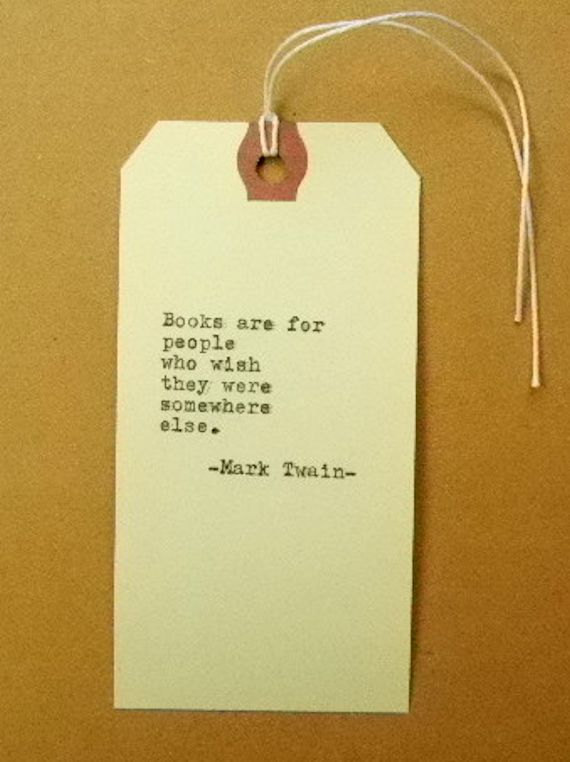 Books are for
people
who wish
they were
somewhere
else.
-Mark Twain-